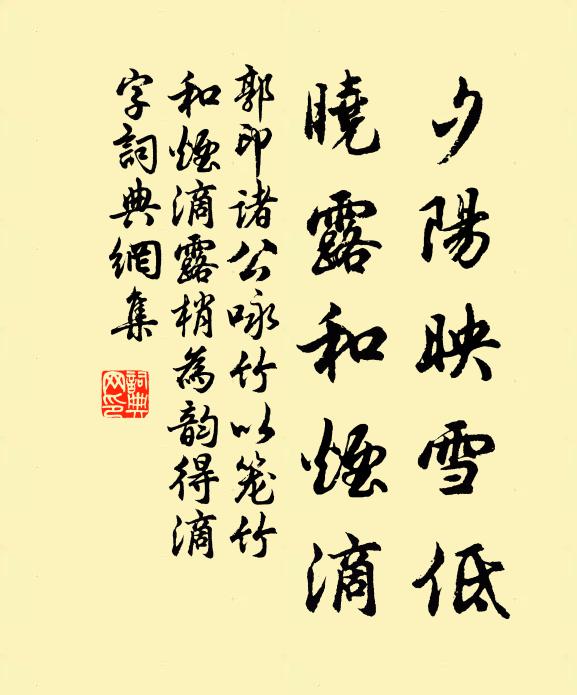 夕陽映雪低
曉露和煙滴
郭印諸公咏竹以笼竹
和煙滴露梢為韵得滴
字詞典網集
詞典
网印